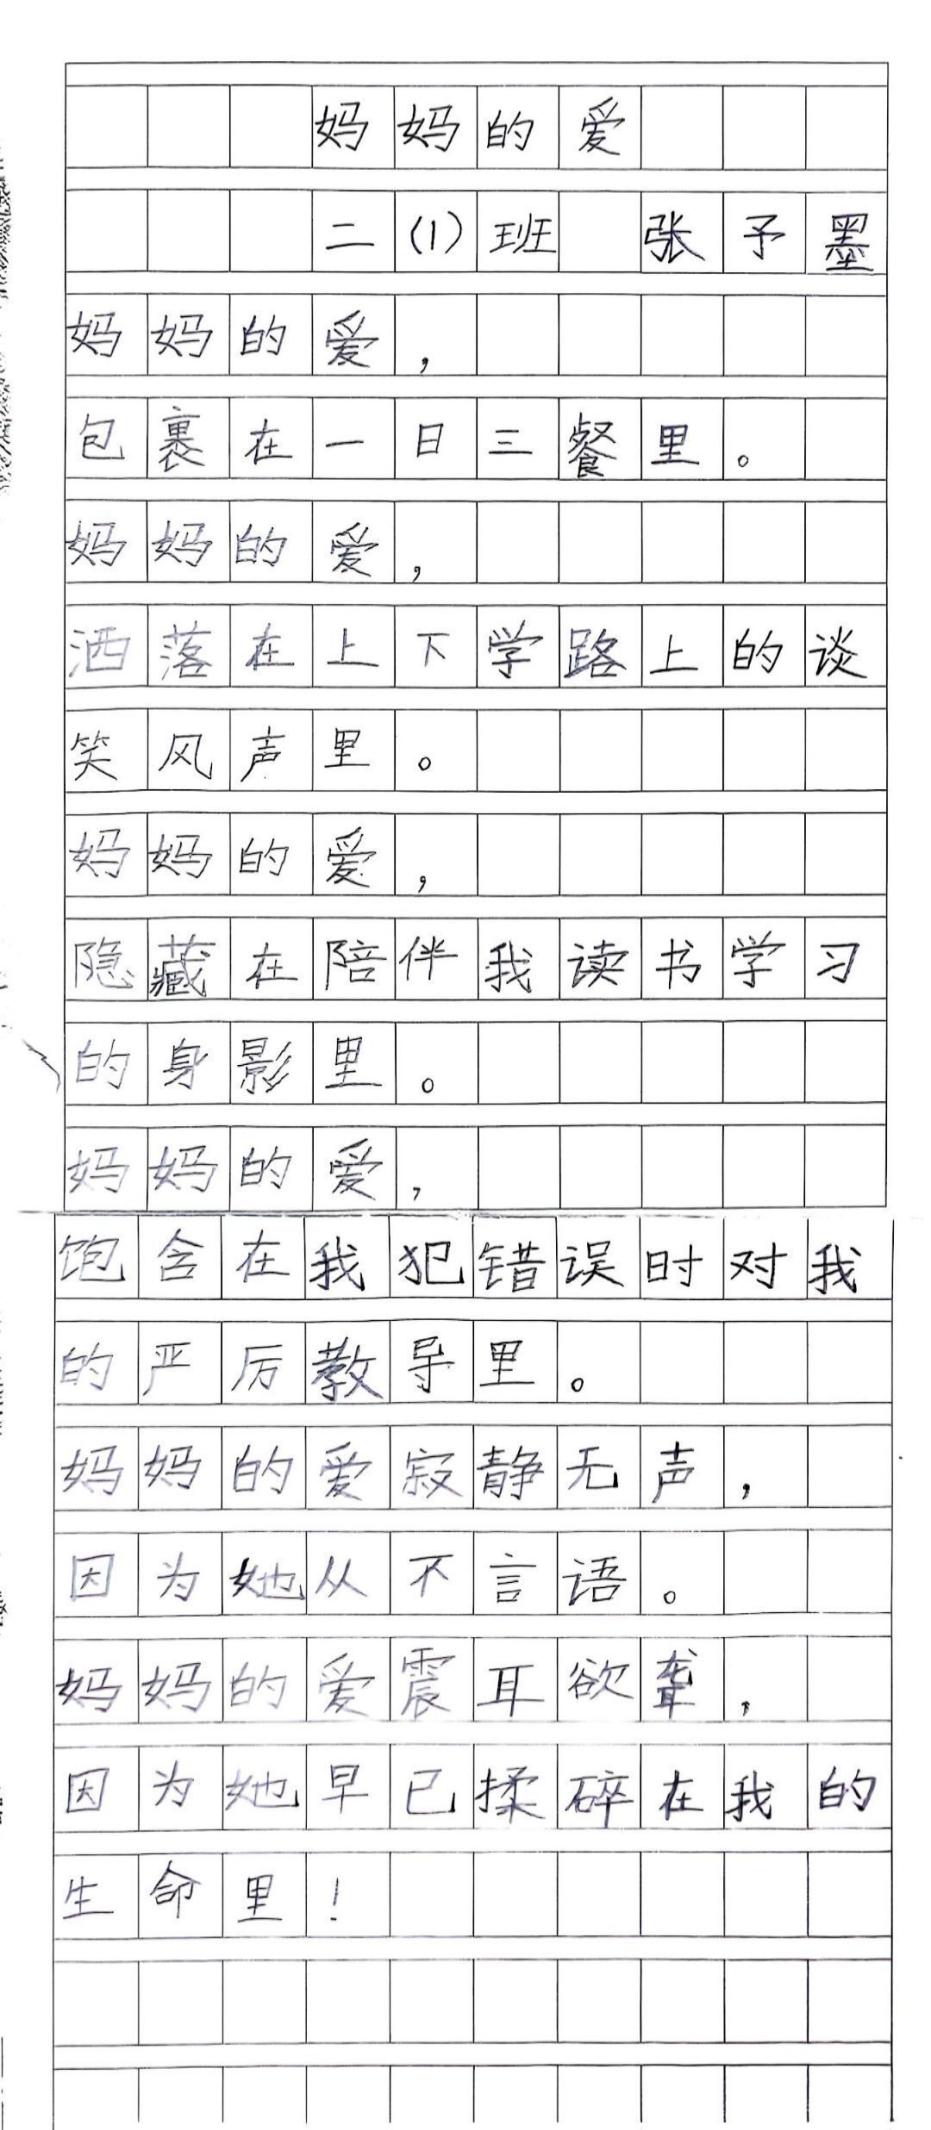 妈妈的爱
二(1)班 张予墨
妈妈的爱，
包裹在一日三餐里。
妈妈的爱，
洒落在上下学路上的谈
笑风声里。
妈妈的爱，
隐藏在陪伴我读书学习
的身影里。
妈妈的爱，
饱含在我犯错误时对我
的严厉教导里。
妈妈的爱寂静无声，
因为她从不言语。
妈妈的爱震耳欲聋，
因为她早已揉碎在我的
生命里！